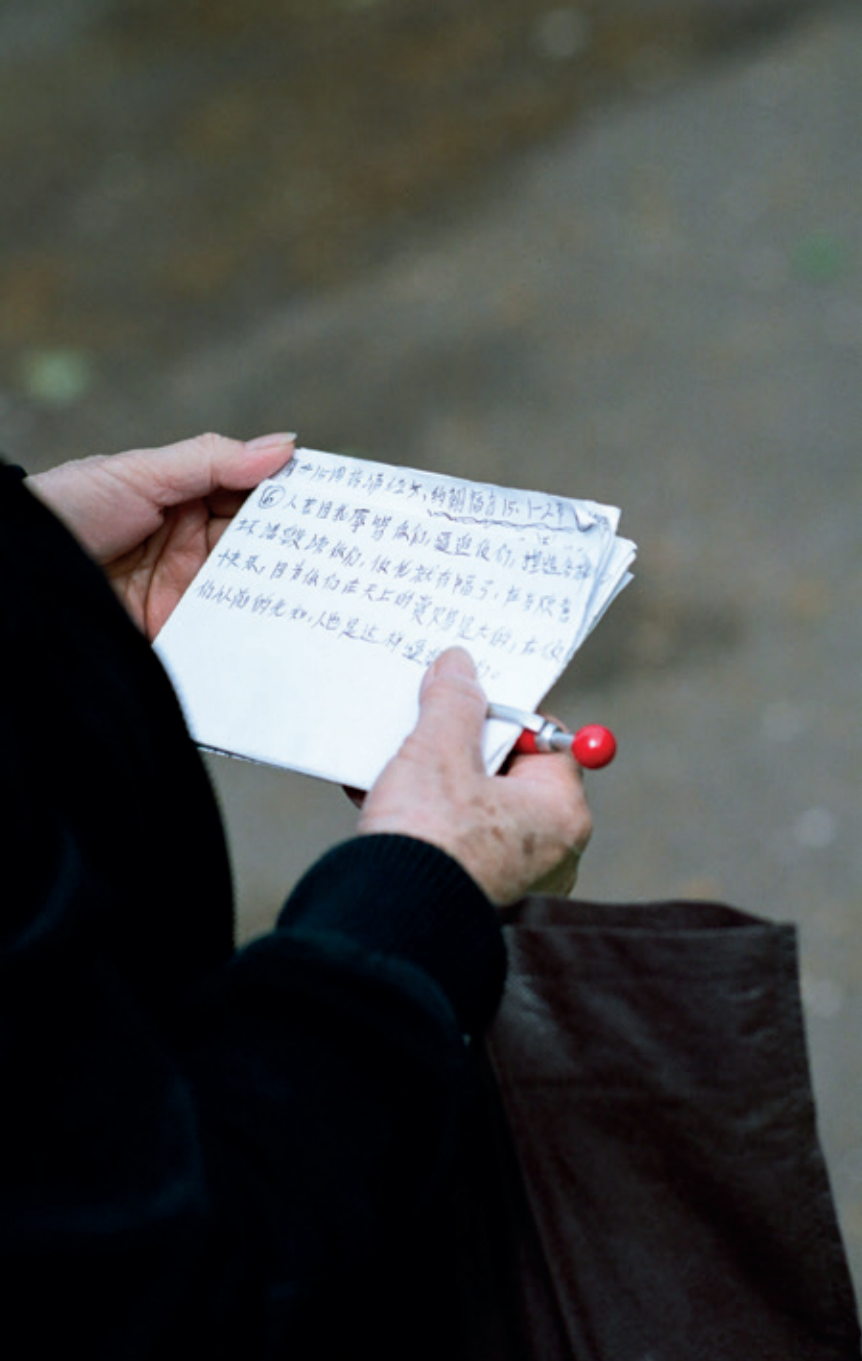 约翰福音15:1-27
⑥人若因我辱骂你们,逼迫你们,捏造各样
坏话毁谤你们,你们就有福了,应当欢喜
快乐,因为你们在天上的赏赐是大的,在你
们以前的先知,人也是这样逼迫